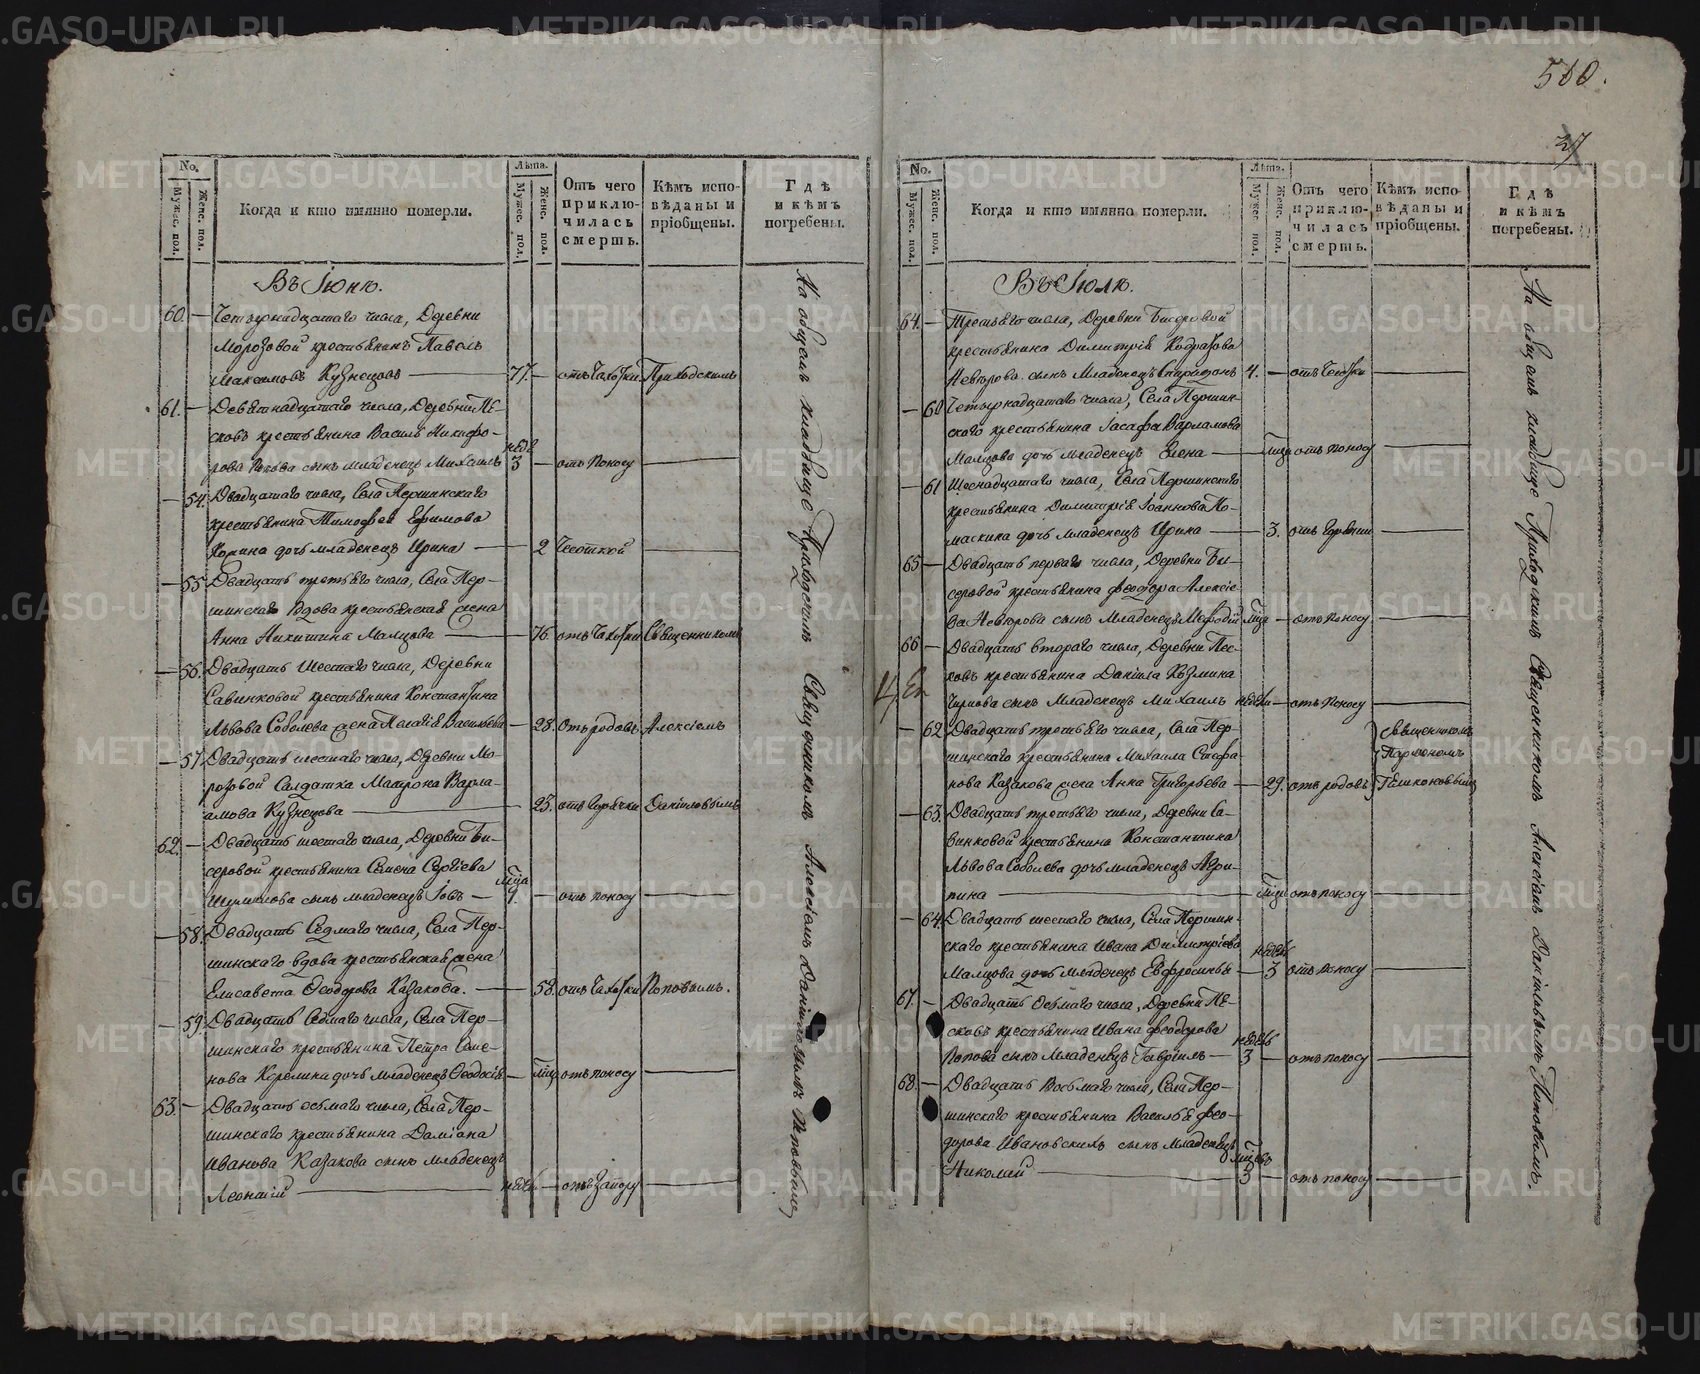 500.
37
No.
Мужес. пол.
Женс. пол.
Когда и кто имянно померли.
Лѣта.
Мужес. пол.
Женс. пол.
Отъ чего приключилась смерть.
Кѣмъ исповѣданы и пріобщены.
Гдѣ и кѣмъ погребены.
Въ Іюнѣ.
60. — Четырнадцатаго числа, Деревни
Морозовой крестьянинъ Павелъ
Максимовъ Кузнецовъ — 77. — отъ Чахотки Приходскимъ
61. — Девятнадцатаго числа, Деревни Пѣ-
сковъ крестьянина Василья Никифо-
рова Попова сынъ младенецъ Михаилъ 3 — отъ Поносу —
— 54. Двадцатаго числа, Села Першинскаго
крестьянина Тимофея Ефимова
дочь младенецъ Ирина — 2
— 55 Двадцать третьяго числа, Села Пер-
шинскаго Вдова крестьянская жена
Анна Никитина Малцова — 76 отъ Чахотки Священникомъ
— 56. Двадцать Шестаго числа, Деревни
Савинковой крестьянина Константина
Львова Соболева жена Пелагія Васильева — 28. Отъ родовъ Алексіемъ
— 57 Двадцать шестаго числа, Деревни Мо-
розовой Солдатка Матрона Варла-
амова Кузнецова — 23. отъ Горячки Даниловымъ
62. — Двадцать шестаго числа, Деревни Би-
серовой крестьянина Семена Сергѣева
сынъ младенецъ Іовъ — — отъ поносу —
— 58. Двадцать Седмаго числа, Села Пер-
шинскаго вдова крестьянская жена
Елисавета Ѳеодорова Казакова. — 58. отъ Чахотки Поповымъ.
— 59. Двадцать Седмаго числа, Села Пер-
шинскаго крестьянина Петра Семе-
нова дочь младенецъ Ѳеодосія — отъ поносу —
63. — Двадцать осьмаго числа, Села Пер-
шинскаго крестьянина Даміана
Иванова Казакова сынъ младенецъ
Леонтій —
На общемъ кладбище Приходскимъ Священникомъ Алексіемъ Даниловымъ Поповымъ
No.
Мужес. пол.
Женс. пол.
Когда и кто имянно померли.
Лѣта.
Мужес. пол.
Женс. пол.
Отъ чего приключилась смерть.
Кѣмъ исповѣданы и пріобщены.
Гдѣ и кѣмъ погребены.
Въ Іюлѣ.
64. — Третьяго числа, Деревни Бисеровой
крестьянина Димитрія
сынъ Младенецъ Спиридонъ 4. —
— 60 Четырнадцатаго числа, Села Першин-
скаго крестьянина Іасафа Варламова
Малцова дочь младенецъ Елена — отъ поносу —
— 61 Шеснадцатаго числа, Села Першинскаго
крестьянина Димитрія Іоаннова По-
маскина дочь младенецъ Ирина — 3. отъ Горячки —
65 — Двадцать перваго числа, Деревни Би-
серовой крестьянина Феодора Алексіе-
ва сынъ Младенецъ Мефодій — отъ Поносу —
66 — Двадцать втораго числа, Деревни Пес-
ковъ крестьянина Даніила Козмина
сынъ Младенецъ Михаилъ — отъ Поносу —
— 62 Двадцать третьяго числа, Села Пер-
шинскаго крестьянина Михаила Стефа-
нова Казакова жена Анна Григорьева — 29. отъ родовъ Священникомъ
— 63. Двадцать третьяго числа, Деревни Са-
винковой крестьянина Константина
Львова Соболева дочь младенецъ Агри-
пина — отъ поносу —
— 64. Двадцать шестаго числа, Села Першин-
скаго крестьянина Ивана Димитріева
Малцова дочь Младенецъ Евфросинья — 3 отъ поносу —
67. — Двадцать Осьмаго числа, Деревни Пѣ-
сковъ крестьянина Ивана Феодорова
Попова сынъ Младенецъ Гавріилъ — 3 — отъ поносу —
68. — Двадцать Восьмаго числа, Села Пер-
шинскаго крестьянина Василья Фео-
дорова Ивановскихъ сынъ младенецъ
Николай — 3 — отъ поносу —
На общемъ кладбище Приходскимъ Священникомъ Алексіемъ Даниловымъ Поповымъ.
METRIKI.GASO-URAL.RU